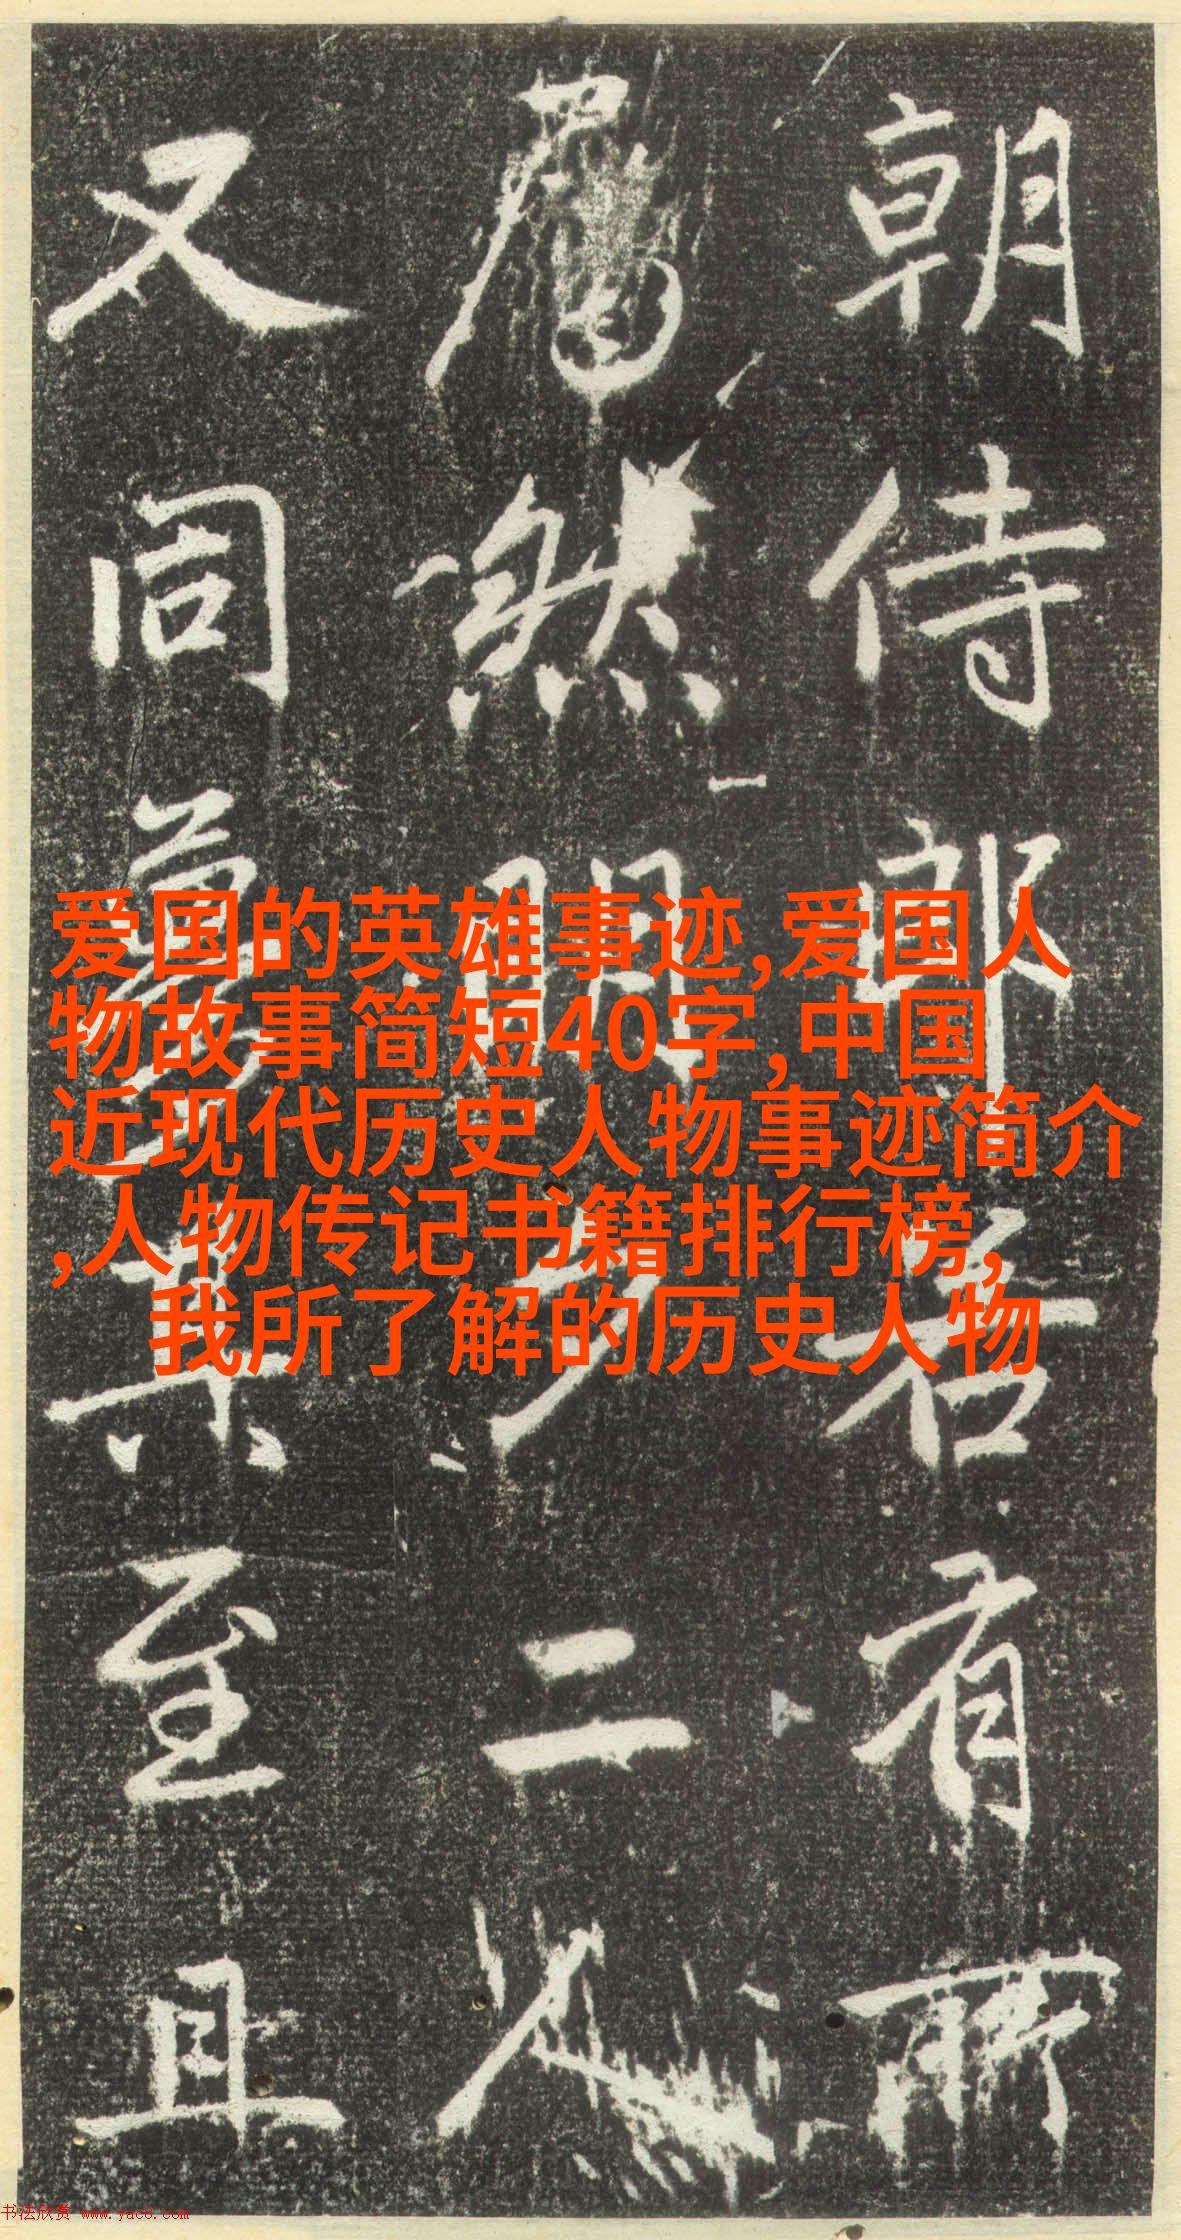 朝侍郎君有所
然明公二人
又同至且
爱国的英雄事迹,爱国人
物故事简短40字,中国
近现代历史人物事迹简介
,人物传记书籍排行榜,
我所了解的历史人物
书法欣赏 www.yac8.com